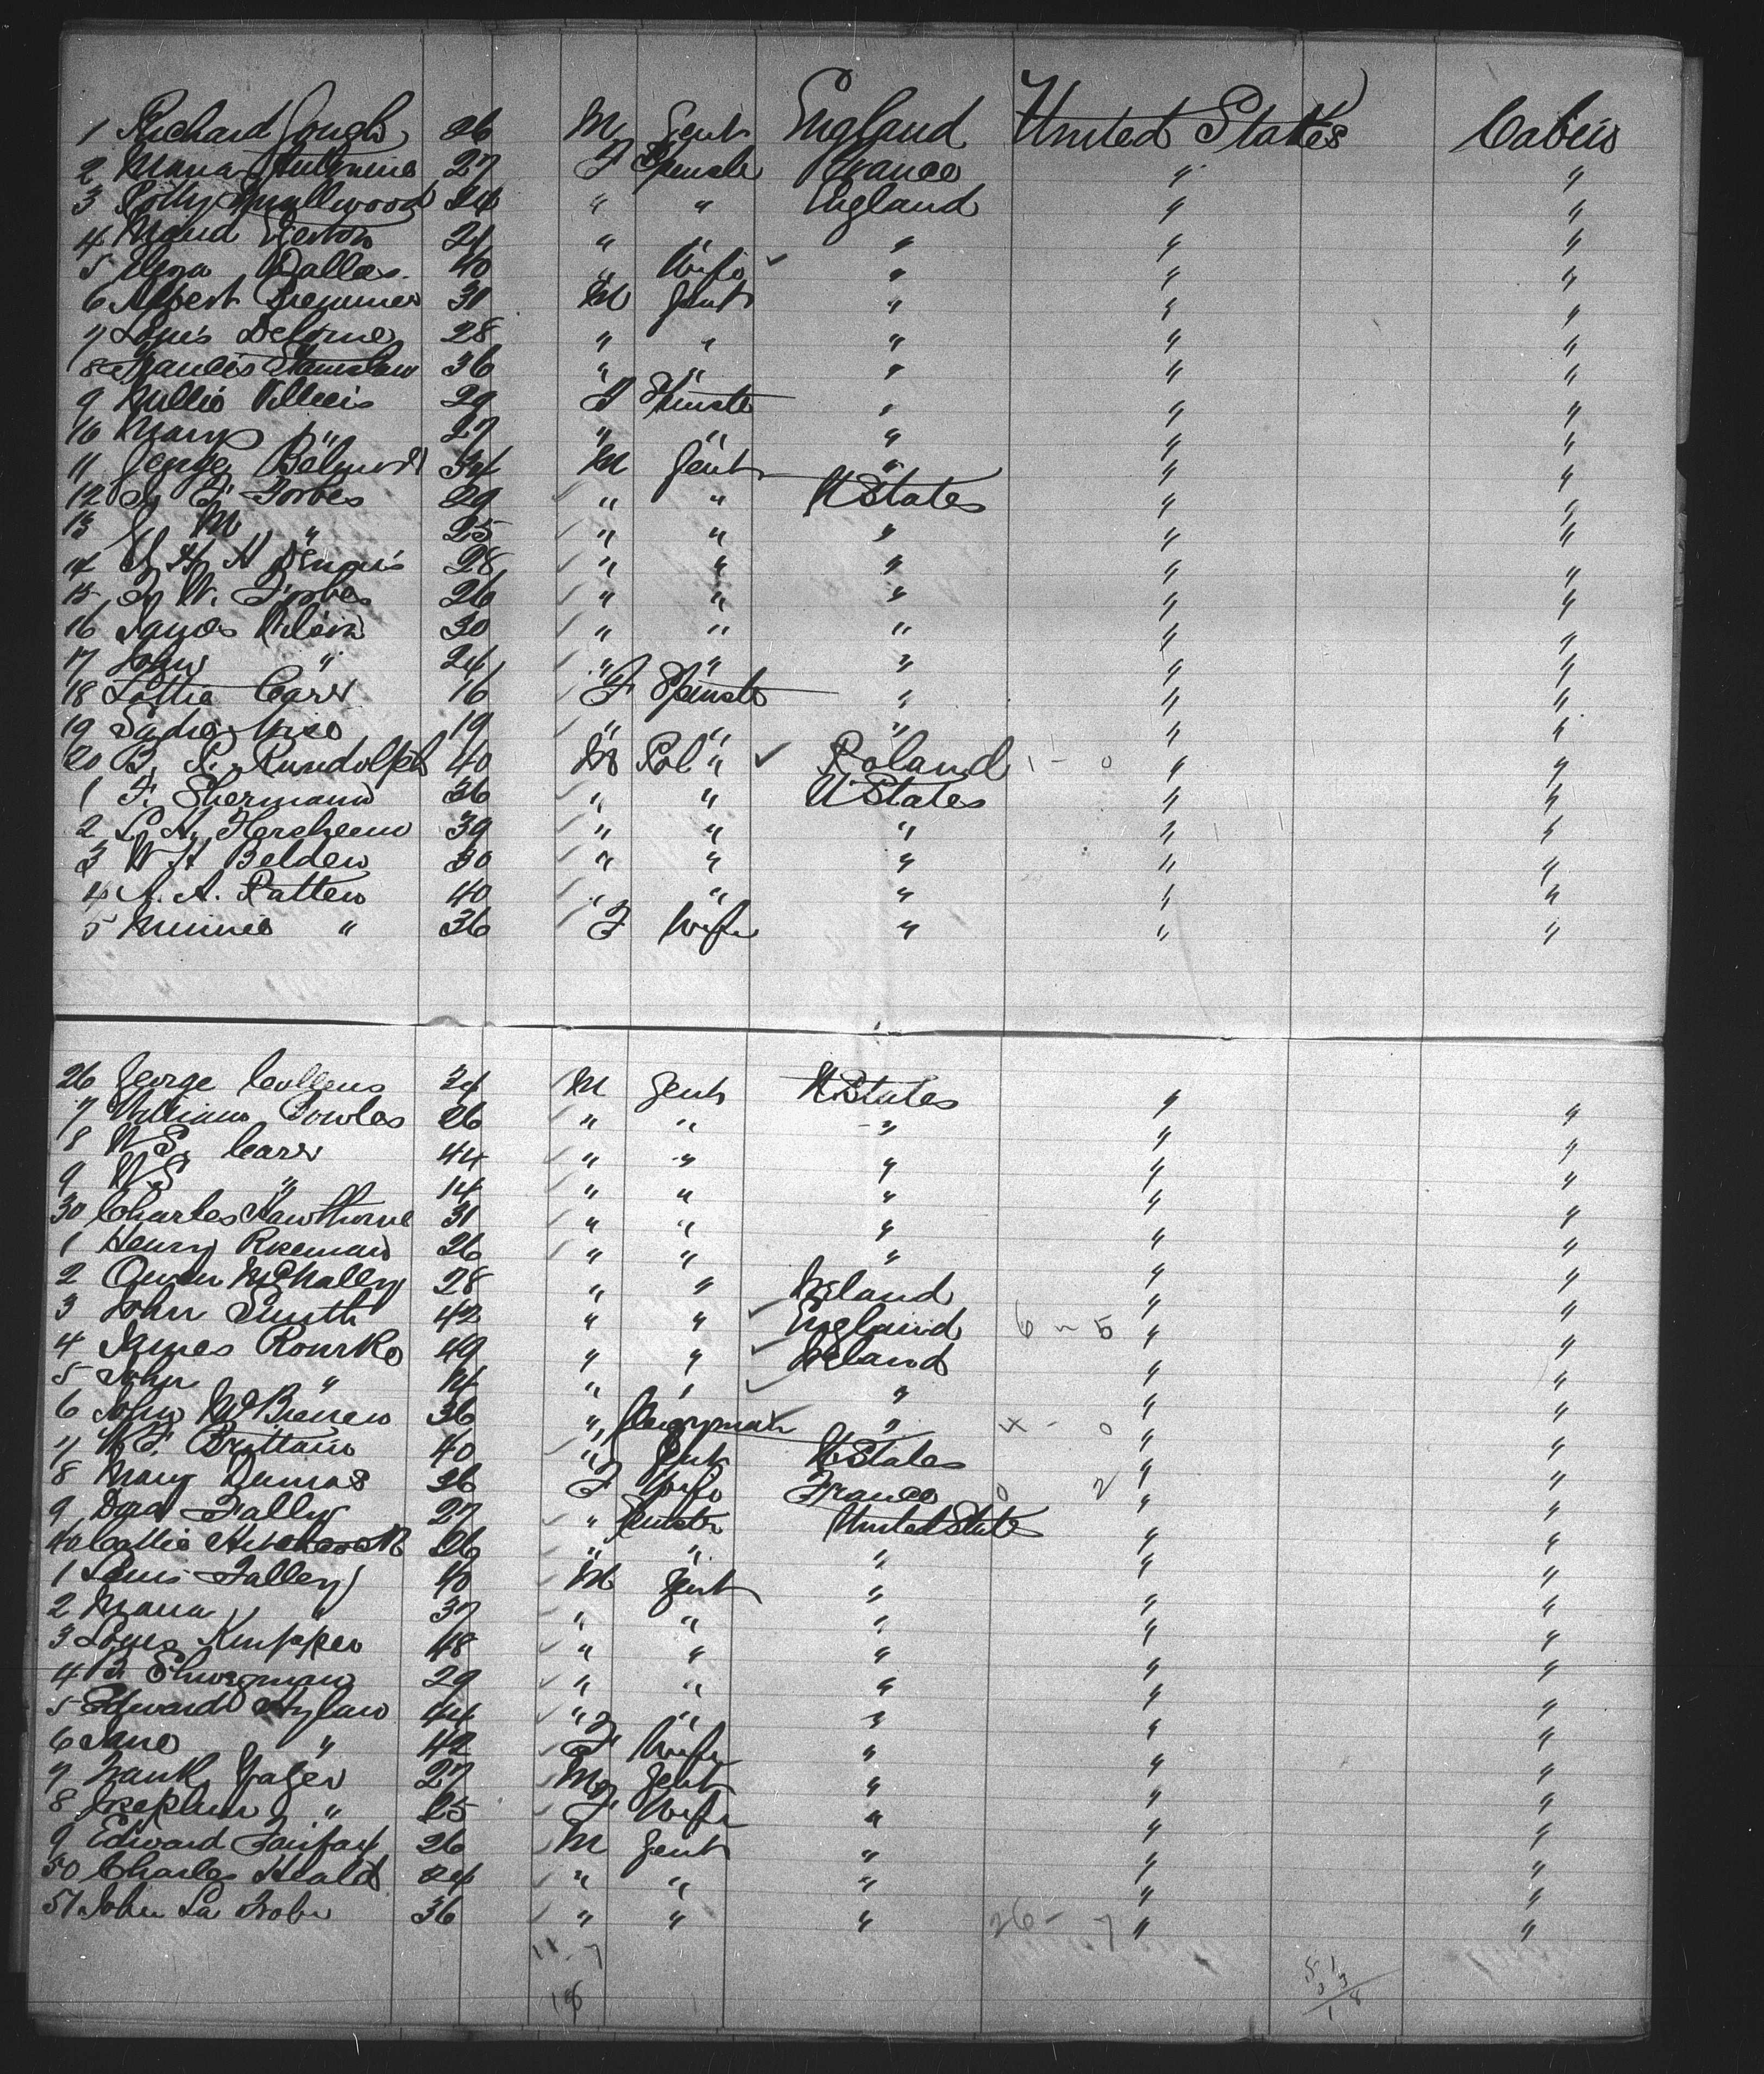 1 Richard Gough 26 M Gent England United States Cabin
2 Maria Antoinine 27 F Spinster France " "
3 Polly Smallwood 24 " " England " "
4 Maud Egerton 21 " " " " "
5 Eliza Dallas. 40 " Wife ✓ " " "
6 Albert Bremmer 31 M Gent " " "
7 Louis Delorme 28 " " " " "
8 Francis Stanislaw 36 " " " " "
9 Nellie Villiers 29 F Spinster " " "
10 Mary " 27 " " " " "
11 George Belmont 34 M Gent " " "
12 F. Forbes 29 ✓ " " U States " "
13 M " 25 ✓ " " " " "
14 H Dennis 28 ✓ " " " " "
15 W. Forbes 26 ✓ " " " " "
16 James Wilson 30 ✓ " " " " "
17 John " 24 ✓ " " " " "
18 Lottie Carr 16 ✓ F Spinster " " "
19 Sadie Wise 19 ✓ " " " " "
20 B. P. Rundolph 40 M Pol " ✓ Poland 1 - 0 " "
1 F. Shermann 36 ✓ " " U States " "
2 L. H. 39 ✓ " " " " "
3 W H Belden 30 ✓ " " " " "
4 A. A. Patten 40 ✓ " " " " "
5 Minnie " 36 ✓ F Wife " " "
26 George Collens 34 ✓ M Gent U States " "
7 William Bowles 26 ✓ " " " " "
8 W S. Carr 44 ✓ " " " " "
9 W S " 14 ✓ " " " " "
30 Charles Hawthorne 31 ✓ " " " " "
1 Henry Riseman 26 ✓ " " " " "
2 Owen McNally 28 " " Ireland " "
3 John Smith 42 " " ✓ England 6 - 5 " "
4 James Rourke 49 " " ✓ Ireland " "
5 John " 14 " " ✓ " " "
6 John McBrien 36 " Clergyman " 4 - 0 " "
7 W F. Brittain 40 ✓ " Gent U States " "
8 Mary Dumas 26 F Wife France 0 2 " "
9 Falley 27 ✓ " Spinster United States " "
40 Callie 26 ✓ " " " " "
1 Louis Falley 40 ✓ M Gent " " "
2 Maria " 37 ✓ " " " " "
3 Louis Knipper 48 ✓ " " " " "
4 29 ✓ " " " " "
5 Edward Hylan 44 ✓ " " " " "
6 Jane " 42 ✓ F Wife " " "
7 Frank Yager 27 ✓ M Gent " " "
8 Josephine " 25 ✓ F Wife " " "
9 Edward Fairfax 26 ✓ M Gent " " "
50 Charles Heald 24 ✓ " " " " "
51 John La Trobe 36 ✓ " " " 26 - 7 " "
11 - 7
18